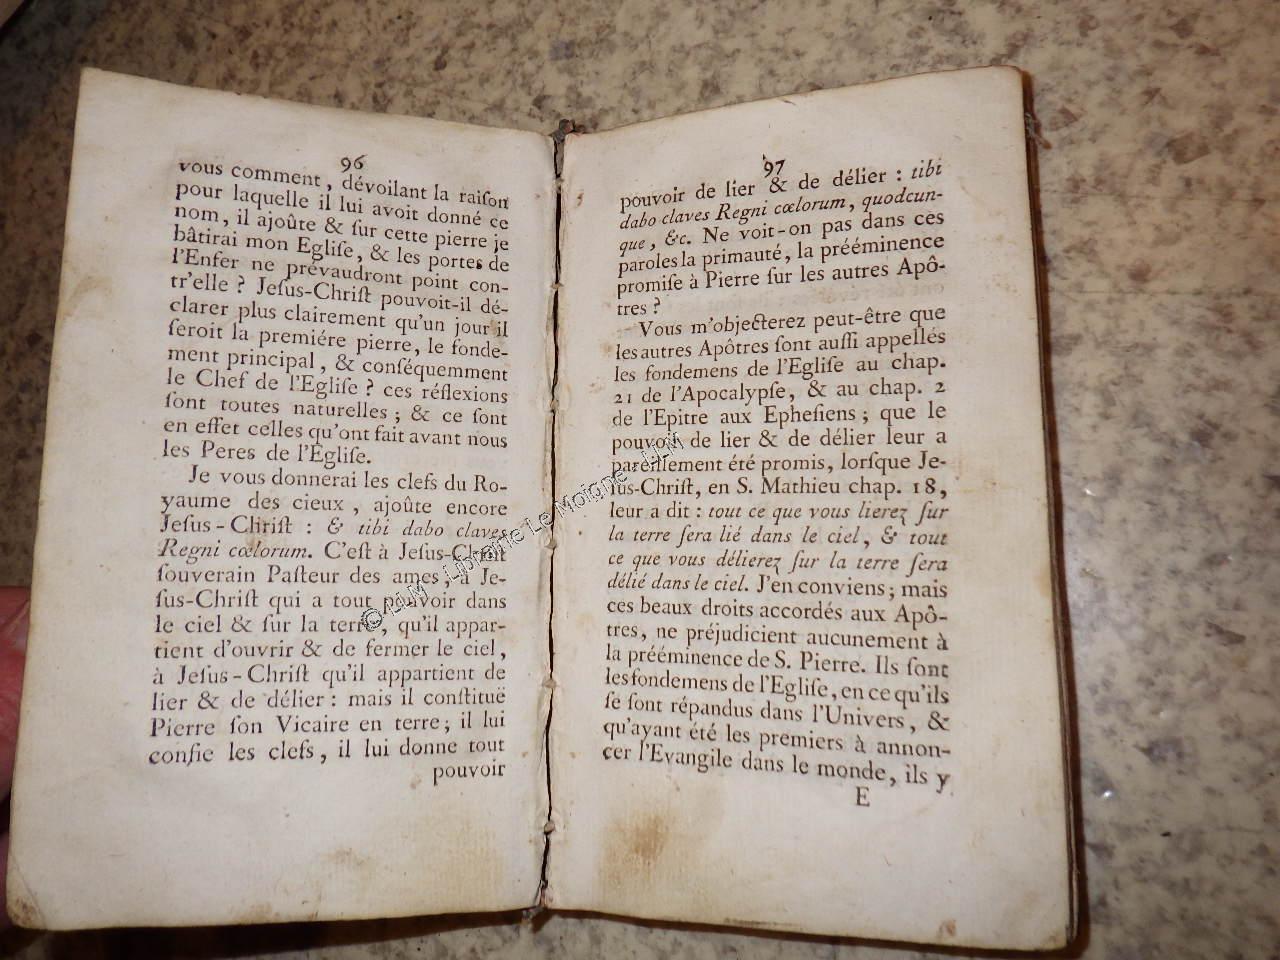 96
vous comment, dévoilant la raiſon
pour laquelle il lui avoit donné ce
nom, il ajoûte & ſur cette pierre je
bâtirai mon Egliſe, & les portes de
l'Enfer ne prévaudront point con-
tr'elle ? Jeſus-Chriſt pouvoit-il dé-
clarer plus clairement qu'un jour il
ſeroit la premiére pierre, le fonde-
ment principal, & conſéquemment
le Chef de l'Egliſe ? ces réflexions
ſont toutes naturelles ; & ce ſont
en effet celles qu'ont fait avant nous
les Peres de l'Egliſe.
Je vous donnerai les clefs du Ro-
yaume des cieux, ajoûte encore
Jeſus-Chriſt : & tibi dabo claves
Regni cœlorum. C'eſt à Jeſus-Chriſt
ſouverain Paſteur des ames ; à Je-
ſus-Chriſt qui a tout pouvoir dans
le ciel & ſur la terre, qu'il appar-
tient d'ouvrir & de fermer le ciel,
à Jeſus-Chriſt qu'il appartient de
lier & de délier : mais il conſtituë
Pierre ſon Vicaire en terre ; il lui
confie les clefs, il lui donne tout
pouvoir
97
pouvoir de lier & de délier : tibi
dabo claves Regni cœlorum, quodcun-
que, &c. Ne voit-on pas dans ces
paroles la primauté, la prééminence
promiſe à Pierre ſur les autres Apô-
tres ?
Vous m'objecterez peut-être que
les autres Apôtres ſont auſſi appellés
les fondemens de l'Egliſe au chap.
21 de l'Apocalypſe, & au chap. 2
de l'Epitre aux Epheſiens ; que le
pouvoir de lier & de délier leur a
pareillement été promis, lorſque Je-
ſus-Chriſt, en S. Mathieu chap. 18,
leur a dit : tout ce que vous lierez ſur
la terre ſera lié dans le ciel, & tout
ce que vous délierez ſur la terre ſera
délié dans le ciel. J'en conviens ; mais
ces beaux droits accordés aux Apô-
tres, ne préjudicient aucunement à
la prééminence de S. Pierre. Ils ſont
les fondemens de l'Egliſe, en ce qu'ils
ſe ſont répandus dans l'Univers, &
qu'ayant été les premiers à annon-
cer l'Evangile dans le monde, ils y
E
© LLM - Librairie Le Moigne - LLM